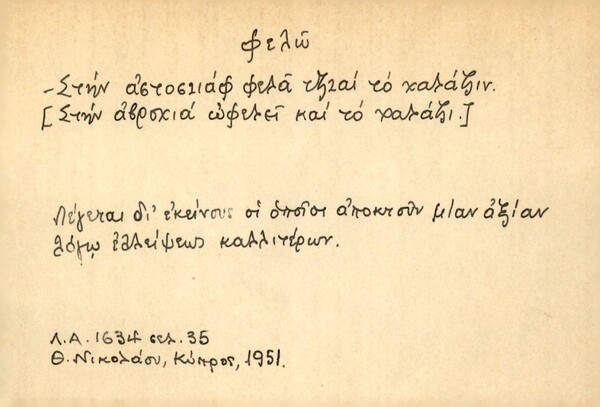 φελῶ
- Στήν ἀστοσιιάφ φελᾶ τζιαί τό χαλάζιν.
[Στήν ἀβροχιά ὠφελεῖ καί τό χαλάζι.]
Λέγεται δι' ἐκείνους οἱ ὁποῖοι ἀποκτοῦν μίαν ἀξίαν
λόγῳ ἐλλείψεως καλλιτέρων.
Λ.Α. 1634 σελ. 35
Θ. Νικολάου, Κύπρος, 1951.